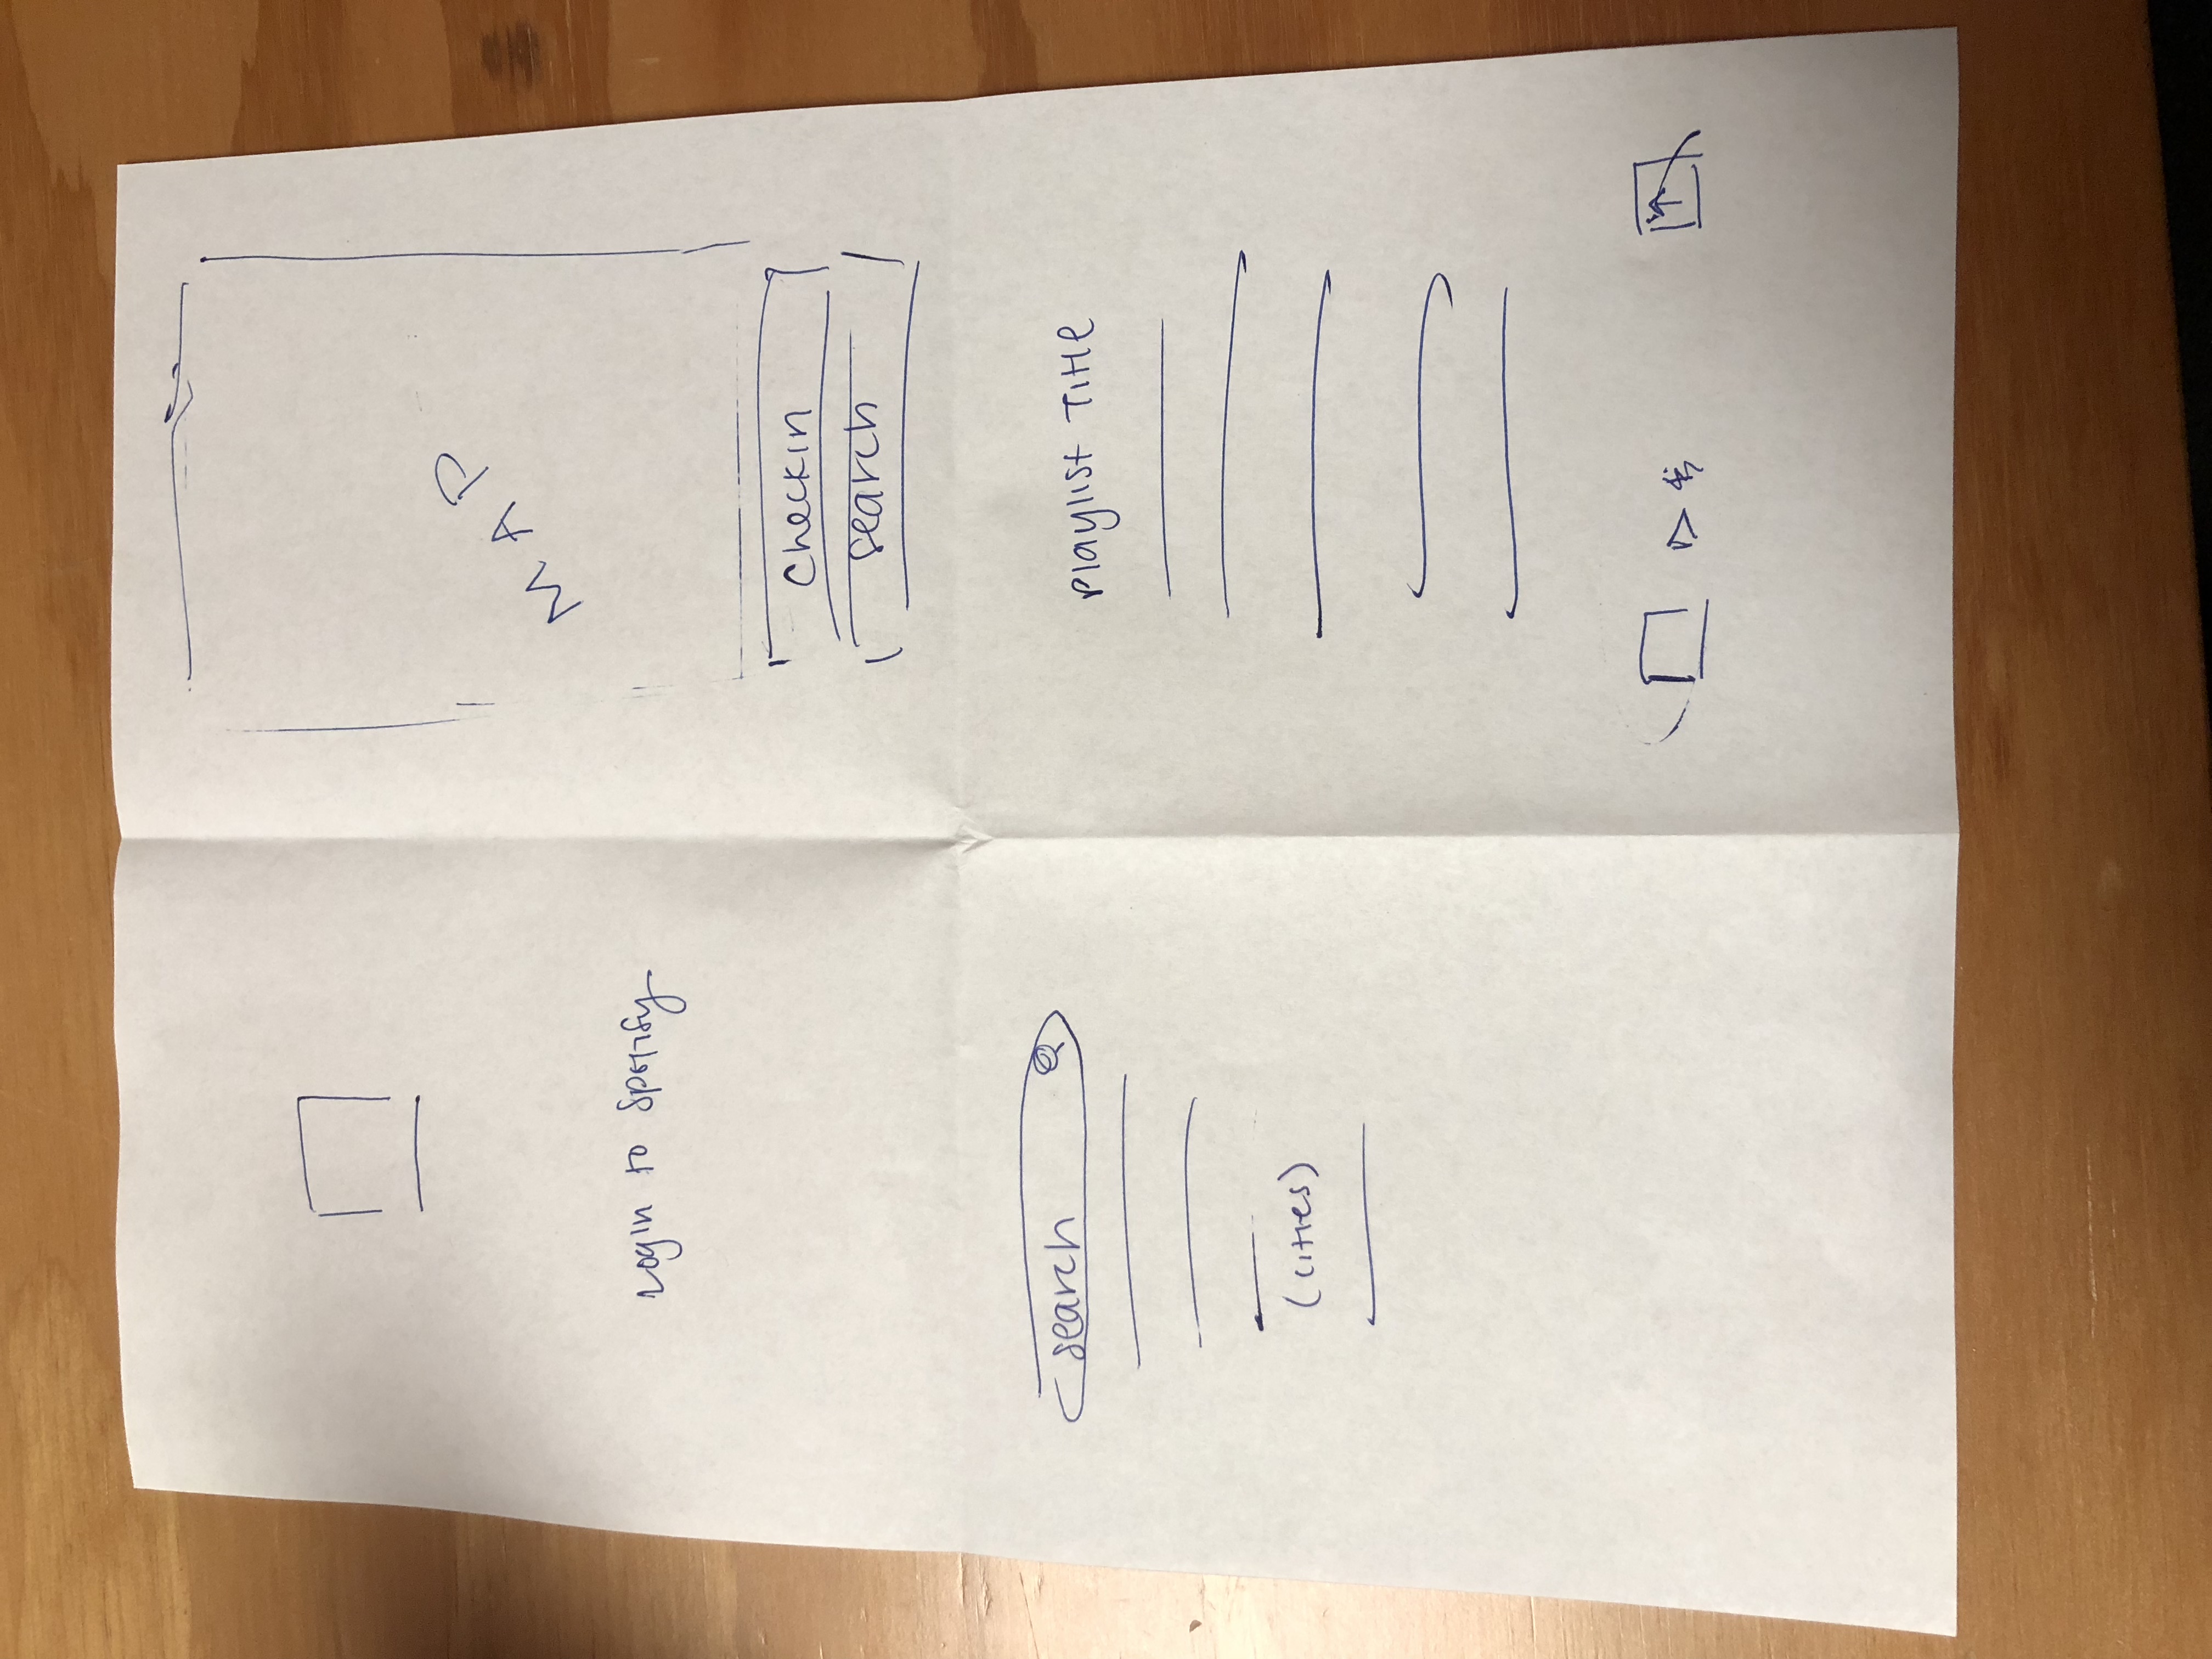 Login to Spotify
MAP
Checkin
search
search
(cities)
Playlist Title